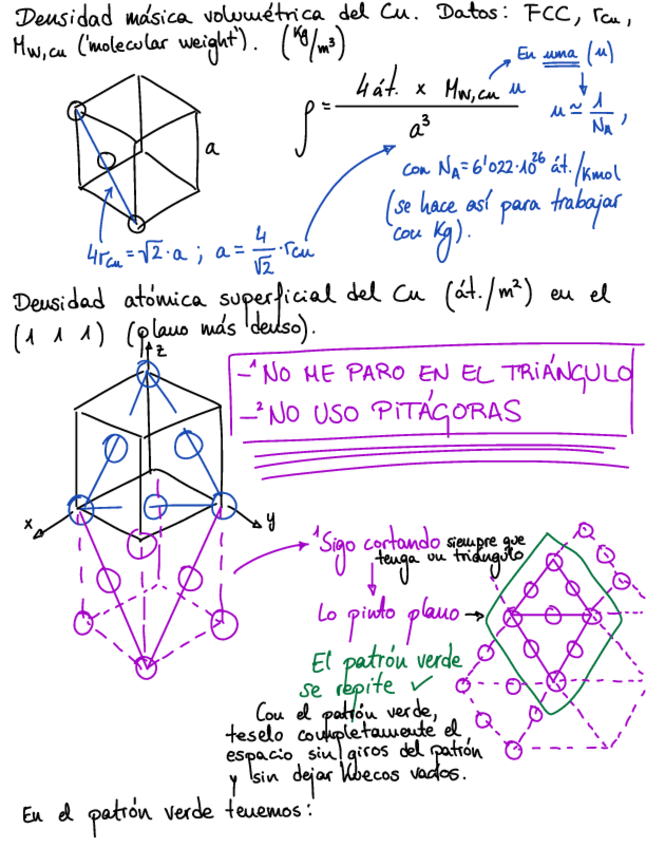 Densidad másica volumétrica del Cu. Datos: FCC, rcu,
Mw,cu ('molecular weight'). (Kg/m³)
En uma (u)
ρ = 4 át. x Mw,cu u / a³
u ≃ 1/NA,
a
con NA = 6'022·10²⁶ át./Kmol
(se hace así para trabajar
con Kg).
4rcu = √2·a ; a = 4/√2 · rcu
Densidad atómica superficial del Cu (át./m²) en el
(1 1 1) (plano más denso).
z
-¹ NO ME PARO EN EL TRIÁNGULO
-² NO USO PITÁGORAS
x
y
¹Sigo cortando siempre que
tenga un triángulo
Lo pinto plano →
El patrón verde
se repite ✓
Con el patrón verde,
teselo completamente el
espacio sin giros del patrón
y sin dejar huecos vacíos.
En el patrón verde tenemos: